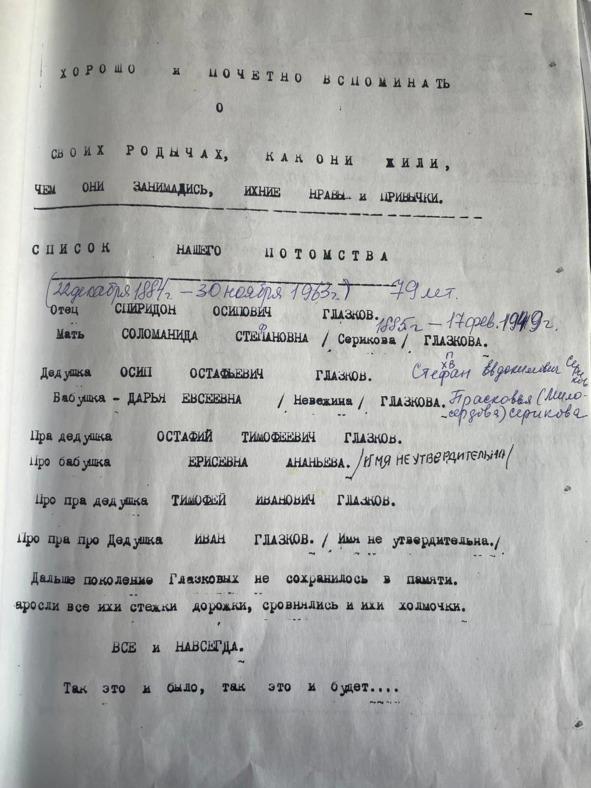 ХОРОШО и ПОЧЕТНО ВСПОМИНАТЬ
О
СВОИХ РОДЫЧАХ, КАК ОНИ ЖИЛИ,
ЧЕМ ОНИ ЗАНИМАДИСЬ, ИХНИЕ НРАВЫ и ПРИВЫЧКИ.
СПИСОК НАШЕГО ПОТОМСТВА
(22 декабря 1884 г – 30 ноября 1963 г.) 79 лет.
Отец СПИРИДОН ОСИПОВИЧ ГЛАЗКОВ.
1885 г – 17 фев. 1949 г.
Мать СОЛОМАНИДА СТЕПАНОВНА / Серикова/ ГЛАЗКОВА.
Ф
Дедушка ОСИП ОСТАФЬЕВИЧ ГЛАЗКОВ.
П
ХВ
Стефан Евдокимович Сериков
Бабушка – ДАРЬЯ ЕВСЕЕВНА / Невежина/ ГЛАЗКОВА.
Прасковья (Мило-
сердова) Серикова
Пра дедушка ОСТАФИЙ ТИМОФЕЕВИЧ ГЛАЗКОВ.
Про бабушка ЕРИСЕВНА АНАНЬЕВА. /ИМЯ НЕ УТВЕРДИТЕЛЬНА/
Про пра дедушка ТИМОФЕЙ ИВАНОВИЧ ГЛАЗКОВ.
Про пра про Дедушка ИВАН ГЛАЗКОВ. / Имя не утвердительна./
Дальше поколение Глазковых не сохранилось в памяти.
аросли все ихи стежки дорожки, сровнялись и ихи холмочки.
ВСЕ и НАВСЕГДА.
Так это и было, так это и будет....